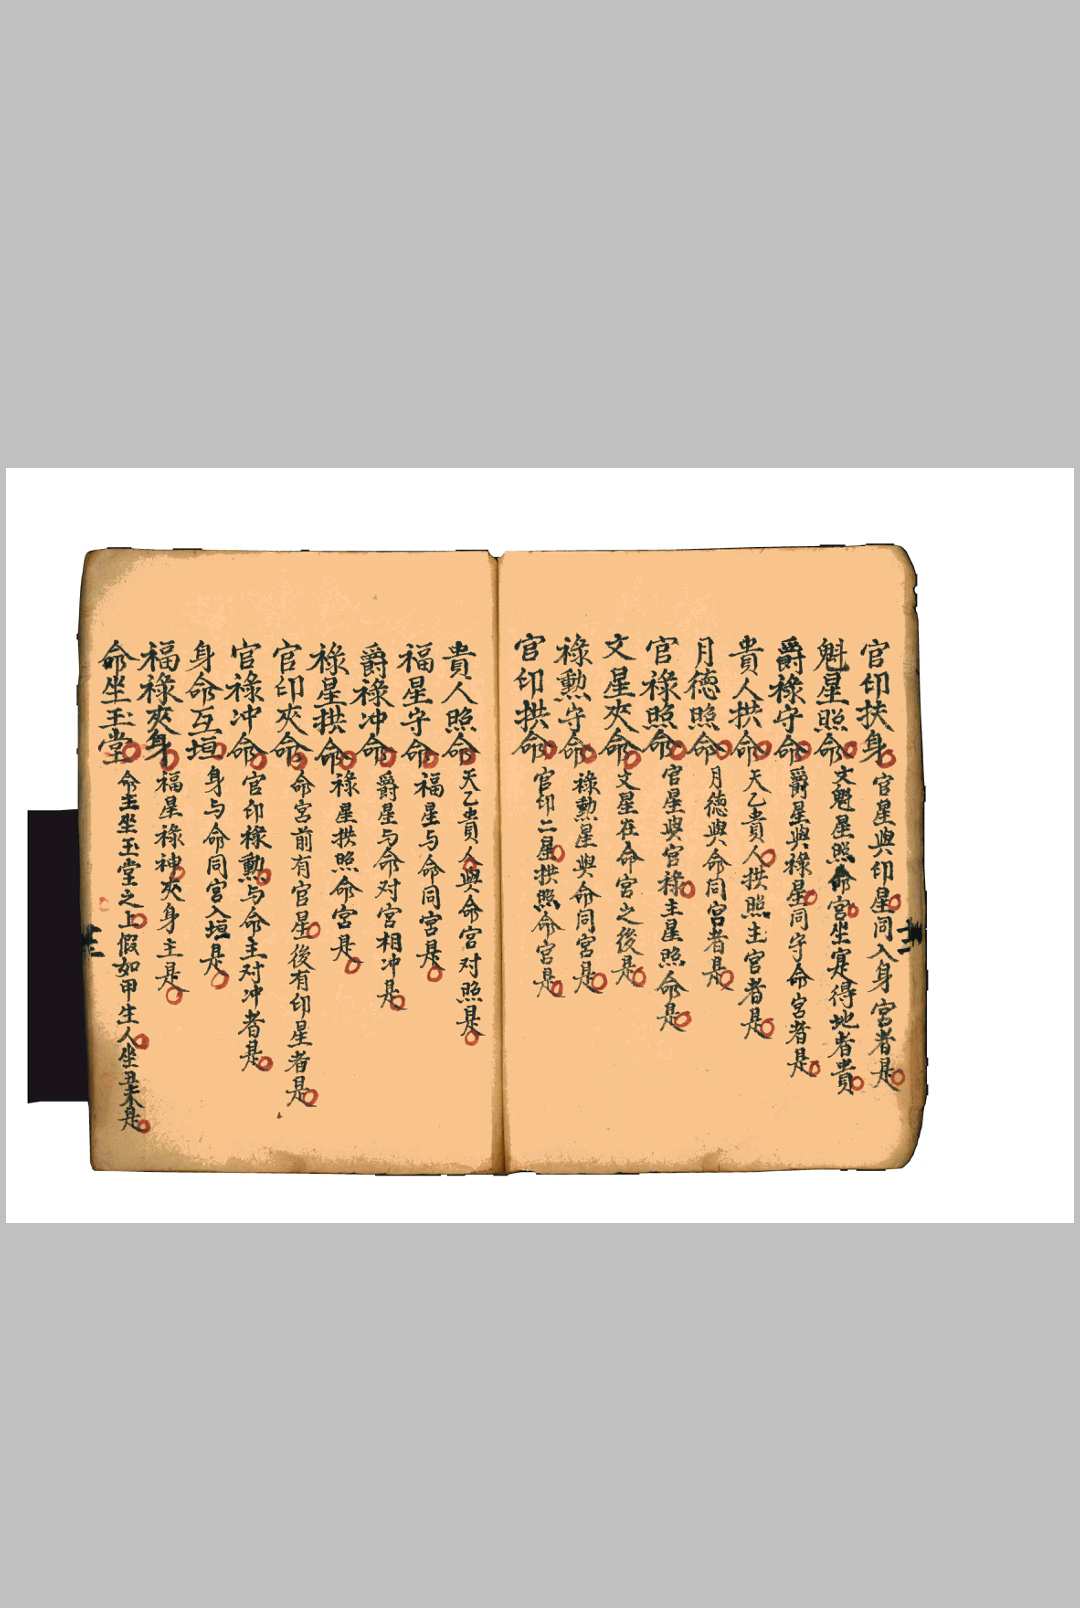 官印扶身 官星與印星同入身宮者是
魁星照命 文魁星照命宮坐寔得地者貴
爵祿守命 爵星與祿星同守命宮者是
貴人拱命 天乙貴人拱照主宮者是
月德照命 月德與命同宮者是
官祿照命 官星與官祿主星照命是
文星夾命 文星在命宮之後是
祿勲守命 祿勲星與命同宮是
官印拱命 官印二星拱照命宮是
貴人照命 天乙貴人與命宮对照是
福星守命 福星与命同宮是
爵祿冲命 爵星与命对宮相冲是
祿星拱命 祿星拱照命宮是
官印夾命 命宮前有官星後有印星者是
官祿冲命 官印祿勲与命主对冲者是
身命互垣 身与命同宮入垣是
福祿夾身 福星祿神夾身主是
命坐玉堂 命主坐玉堂之上假如甲生人坐丑未是